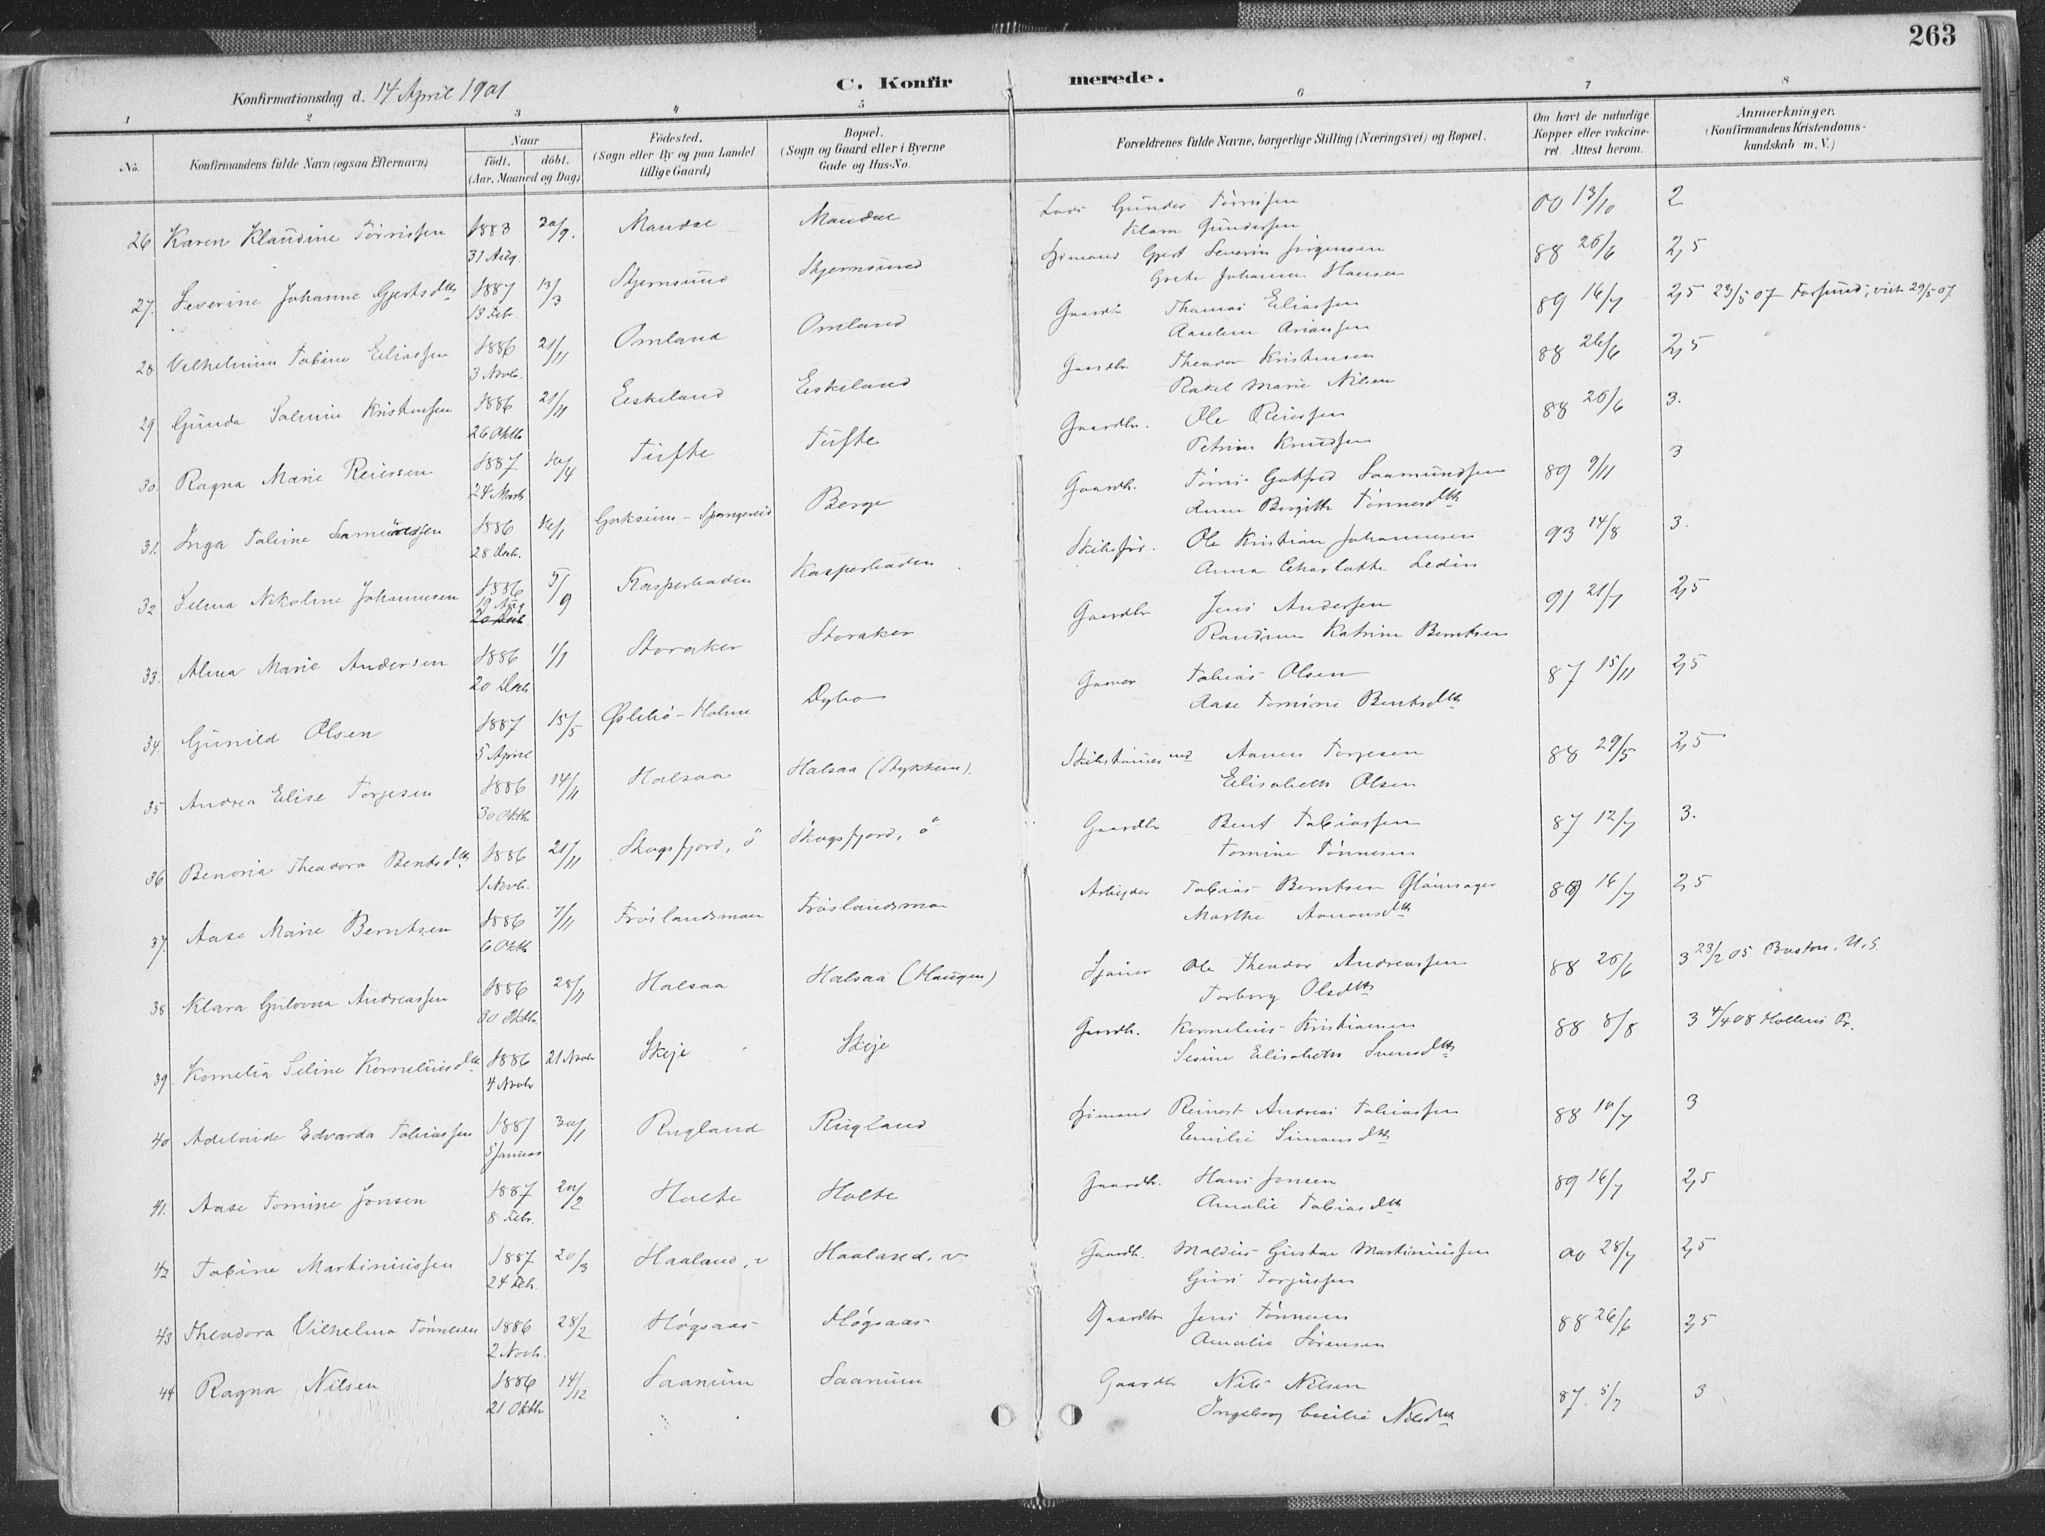 263
Konfirmationsdag d. 14 April 1901
C. Konfirmerede.
1 2 3 4 5 6 7 8
No.
Konfirmandens fulde Navn (ogsaa Efternavn)
Naar
födt. döbt.
(Aar, Maaned og Dag)
Födested.
(Sogn eller By og paa Landet
tillige Gaard)
Bopæl.
(Sogn og Gaard eller i Byerne
Gade og Hus-No.
Forældrenes fulde Navne, borgerlige Stilling (Næringsvei) og Bopæl.
Om havt de naturlige
Kopper eller vakcine-
ret. Attest herom.
Anmærkninger.
(Konfirmandens Kristendoms-
kundskab m. V.)
26 Karen Klaudine Tørrissen 1883 20/9. Mandal Mandal Lods Gunder Tørrissen 00 13/10 2
31 Aug. Klara Gundersen
27. Severine Johanne Gjertsdtt 1887 13/3 Skjernsund Skjernsund Gjert Severin Jørgensen 88 26/6 2,5
13 Febr. Grete Johanne Hansen
28 Vilhelmine Tobine Eliassen 1886 21/11 Omland Omland Gaardb. Thomas Eliassen 89 16/7 2,5 23/5 07 Farsund, vielt 29/5 07
3 Novb. Arianssen
29 Gunda Salmine Kristensen 1886 21/11 Eskeland Eskeland Gaardbr. Theodor Kristensen 88 26/6 2,5
26 Oktb Rakel Marie Nilsen
30. Ragna Marie Reiersen 1887 10/4 Tufte Tufte Gaardbr. Ole Reiersen 88 26/6 3.
24 Marts Petrine Knudsen
31. Inga Taline Samundsen 1886 16/1 Spangereid Berge Gaardb. Tønnes Gotfred Saamundsen 89 9/11 3
28 Decb. Anne Birgitte Tønnesdtt
32 Selma Nikoline Johannesen 1886 5/9 Kasperbaden Kasperbaden Skibsfør. Ole Kristian Johannesen 93 14/8 3.
19 Aug Anna Charlotte Ledin
20 Decb.
33. Alma Marie Andersen 1886 1/1 Storaker Storaker Gaardbr Jens Andersen 91 21/7 2,5
20 Decb Randine Katrine Berntsen
34. Gunild Olsen 1887 15/5 Øslebø - Holme Dybo Garver Tobias Olsen 87 15/11 2,5
5 April Aase Tomine Bentsdtt
35 Andrea Elise Torjesen 1886 14/11 Halsaa Halsaa (Stykkene). Skibstømmermd Aanen Torjesen 88 29/5 2,5
30 Oktb Elisabeth Olsen
36 Benoria Theodora Bentsdtt 1886 21/11 Skogsfjord, ö Skogsfjord, ö Gaardbr Bent Tobiassen 87 12/7 3.
1 Novb. Tomine Tønnesen
37. Aase Marie Berntsen 1886 7/11 Frøslandsmon Frøslandsmon Arbejder Tobias Berntsen Glomsager 89 16/7 2,5
6 Oktb Marthe Aanonsdtt
38 Klara Gulovna Andreassen 1886 28/11 Halsaa Halsaa (Haugen) Ole Theodor Andreassen 88 26/6 3 23/2 05 Boston. U.S.
30 Oktb. Torborg Olsdtt
39. Kornelia Seline Korneliusdtt 1886 21 Novb Skeje Skeje Gaardb. Kornelius Kristiansen 88 8/8 3 4/4 08 Hollens Pr.
4 Novb Sesine Elisabeth Svensdtt
40 Adelaide Edvarda Tobiassen 1887 30/1 Rugland Rugland Reinert Andreas Tobiassen 88 10/7 3
5 Januar Emilie Simonsdtt
41. Aase Tomine Jonsen 1887 20/2 Holte Holte Gaardb. Hans Jonsen 89 16/7 2,5
8 Febr. Amalie Tobiasdtt
42 Tobine Martiniussen 1887 20/3 Haaland, v Haaland, v Gaardb. Gustav Martiniussen 00 28/7 2,5
24 Feb. Guri Torjussen
43 Theodora Vilhelma Tønnesen 1886 28/2 Høgsaas Høgsaas Gaardbr Jens Tønnesen 88 26/6 2,5
2 Novb. Amalie Sørensen
44 Ragna Nilsen 1886 14/12 Saanum Saanum Gaardbr Nils Nilsen 87. 5/7 3
21 Oktb Ingeborg Cecilie Nilsdtt